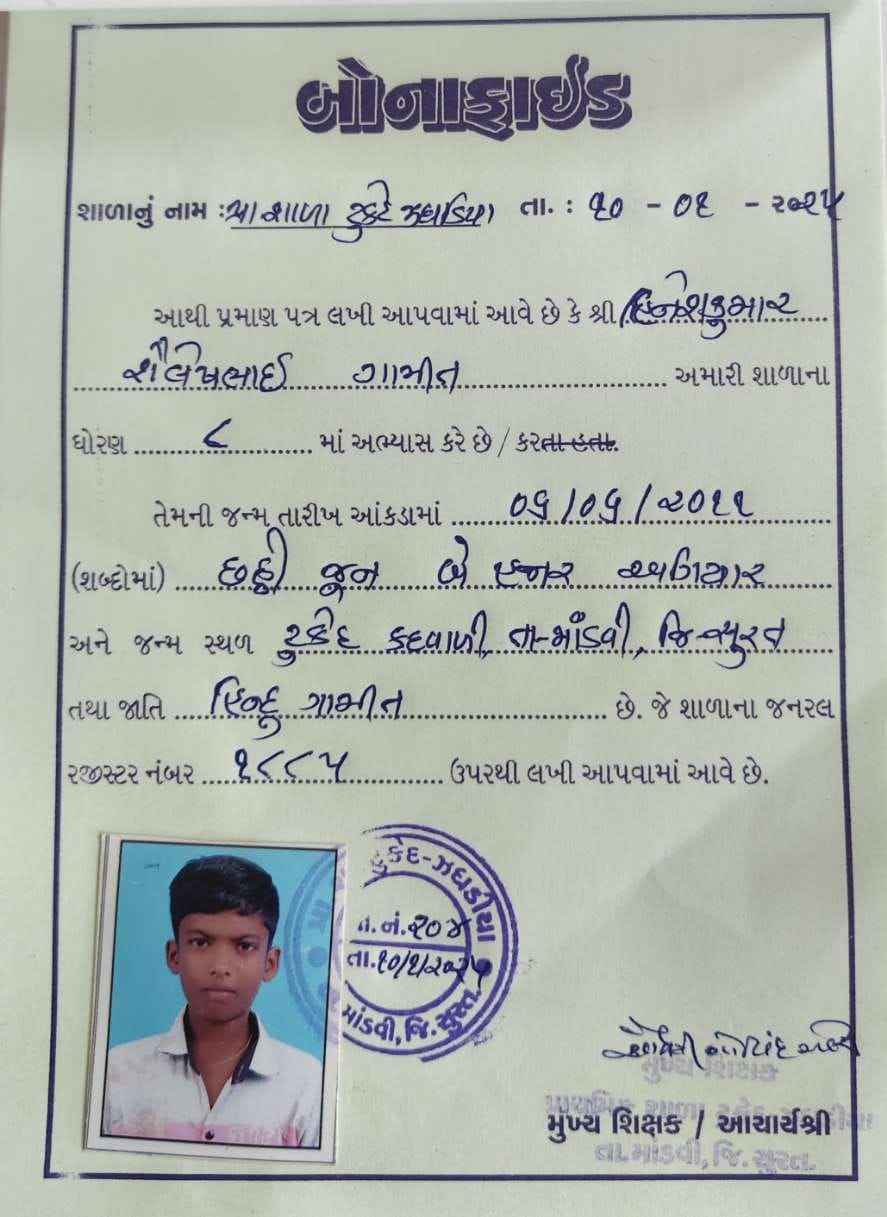 બોનાફાઈડ
શાળાનું નામ : પ્રા શાળા ટુકેદ ઝઘડિયા તા. : ૧૦ - ૦૧ - ૨૦૨૫
આથી પ્રમાણ પત્ર લખી આપવામાં આવે છે કે શ્રી હિનેશકુમાર
શૈલેષભાઈ ગામીત અમારી શાળાના
ધોરણ ૮ માં અભ્યાસ કરે છે / કરતા હતા.
તેમની જન્મ તારીખ આંકડામાં ૦૬/૦૬/૨૦૧૧
(શબ્દોમાં) છઠ્ઠી જૂન બે હજાર અગિયાર
અને જન્મ સ્થળ ટુકેદ કદવાળી, તા-માંડવી, જિ-સુરત
તથા જાતિ હિન્દુ ગામીત છે. જે શાળાના જનરલ
રજીસ્ટર નંબર ૧૮૮૫ ઉપરથી લખી આપવામાં આવે છે.
ટુકેદ-ઝઘડીયા
ત. નં. ૨૦૪
તા. ૧૦/૧/૨૦૨૫
માંડવી, જિ. સુરત.
મુખ્ય શિક્ષક
મુખ્ય શિક્ષક / આચાર્યશ્રી
તા. માંડવી, જિ. સુરત.